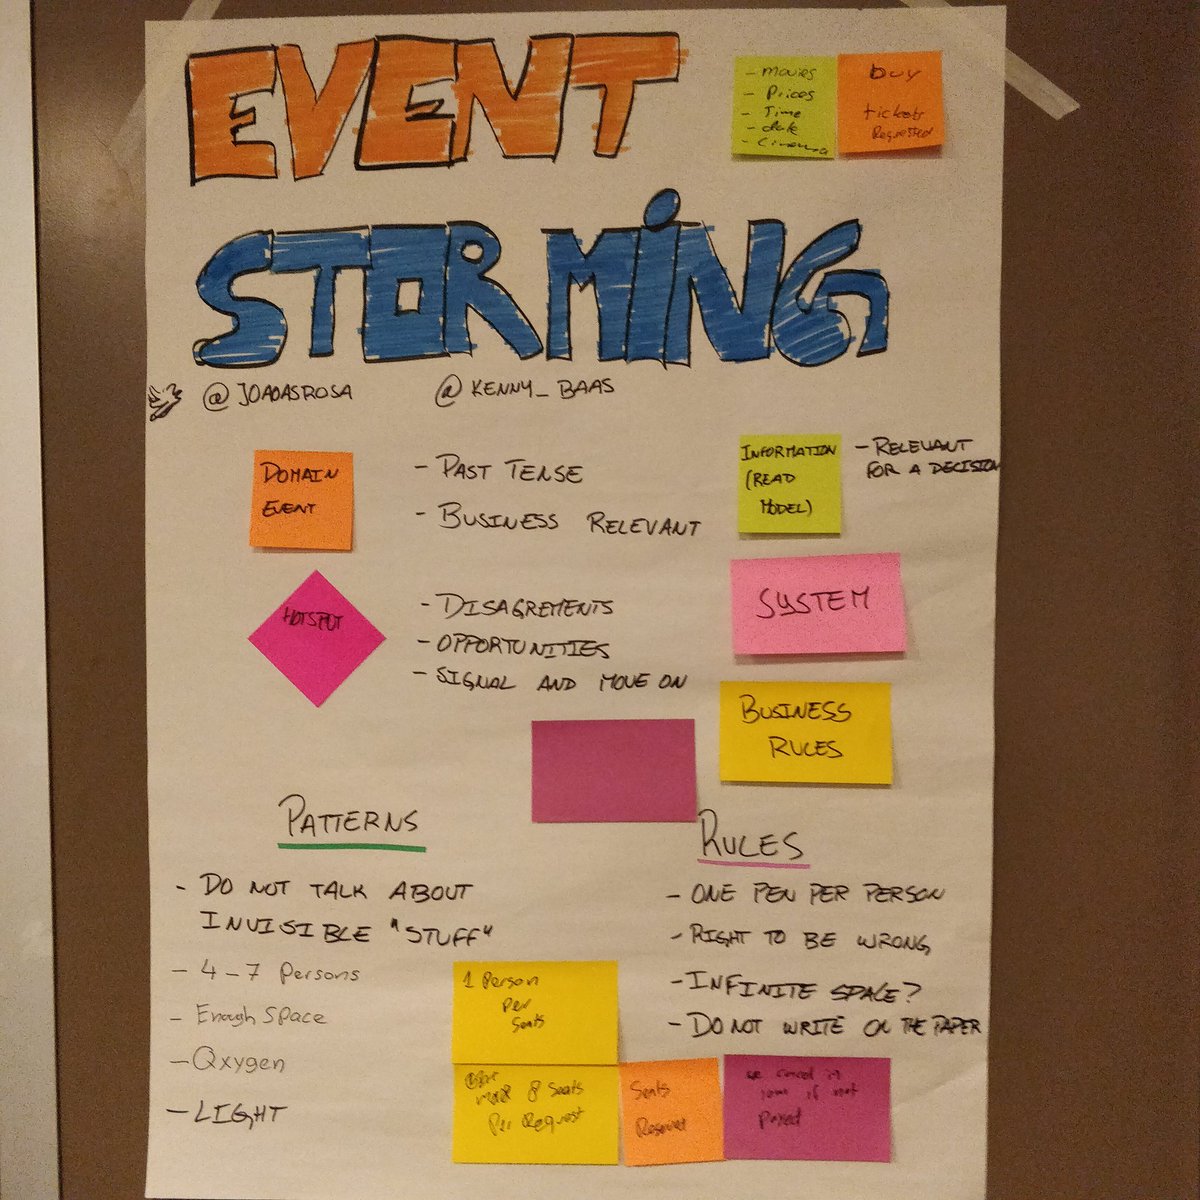 EVENT
STORMING
- Movies
- Prices
- Time
- date
- Cinema
buy
tickets
Requested
@JOAOASROSA
@KENNY_BAAS
DOMAIN
EVENT
- PAST TENSE
- BUSINESS RELEVANT
INFORMATION
(READ
MODEL)
- RELEVANT
FOR A DECISION
HOTSPOT
- DISAGREMENTS
- OPPORTUNITIES
- SIGNAL AND MOVE ON
SYSTEM
BUSINESS
RULES
PATTERNS
- DO NOT TALK ABOUT
INVISIBLE "STUFF"
- 4-7 Persons
- Enough Space
- Oxygen
- LIGHT
RULES
- ONE PEN PER PERSON
- RIGHT TO BE WRONG
- INFINITE SPACE?
- DO NOT WRITE ON THE PAPER
1 Person
per
Seats
max 8 Seats
Per Request
Seats
Reserved
we cancel in
if not
Payed